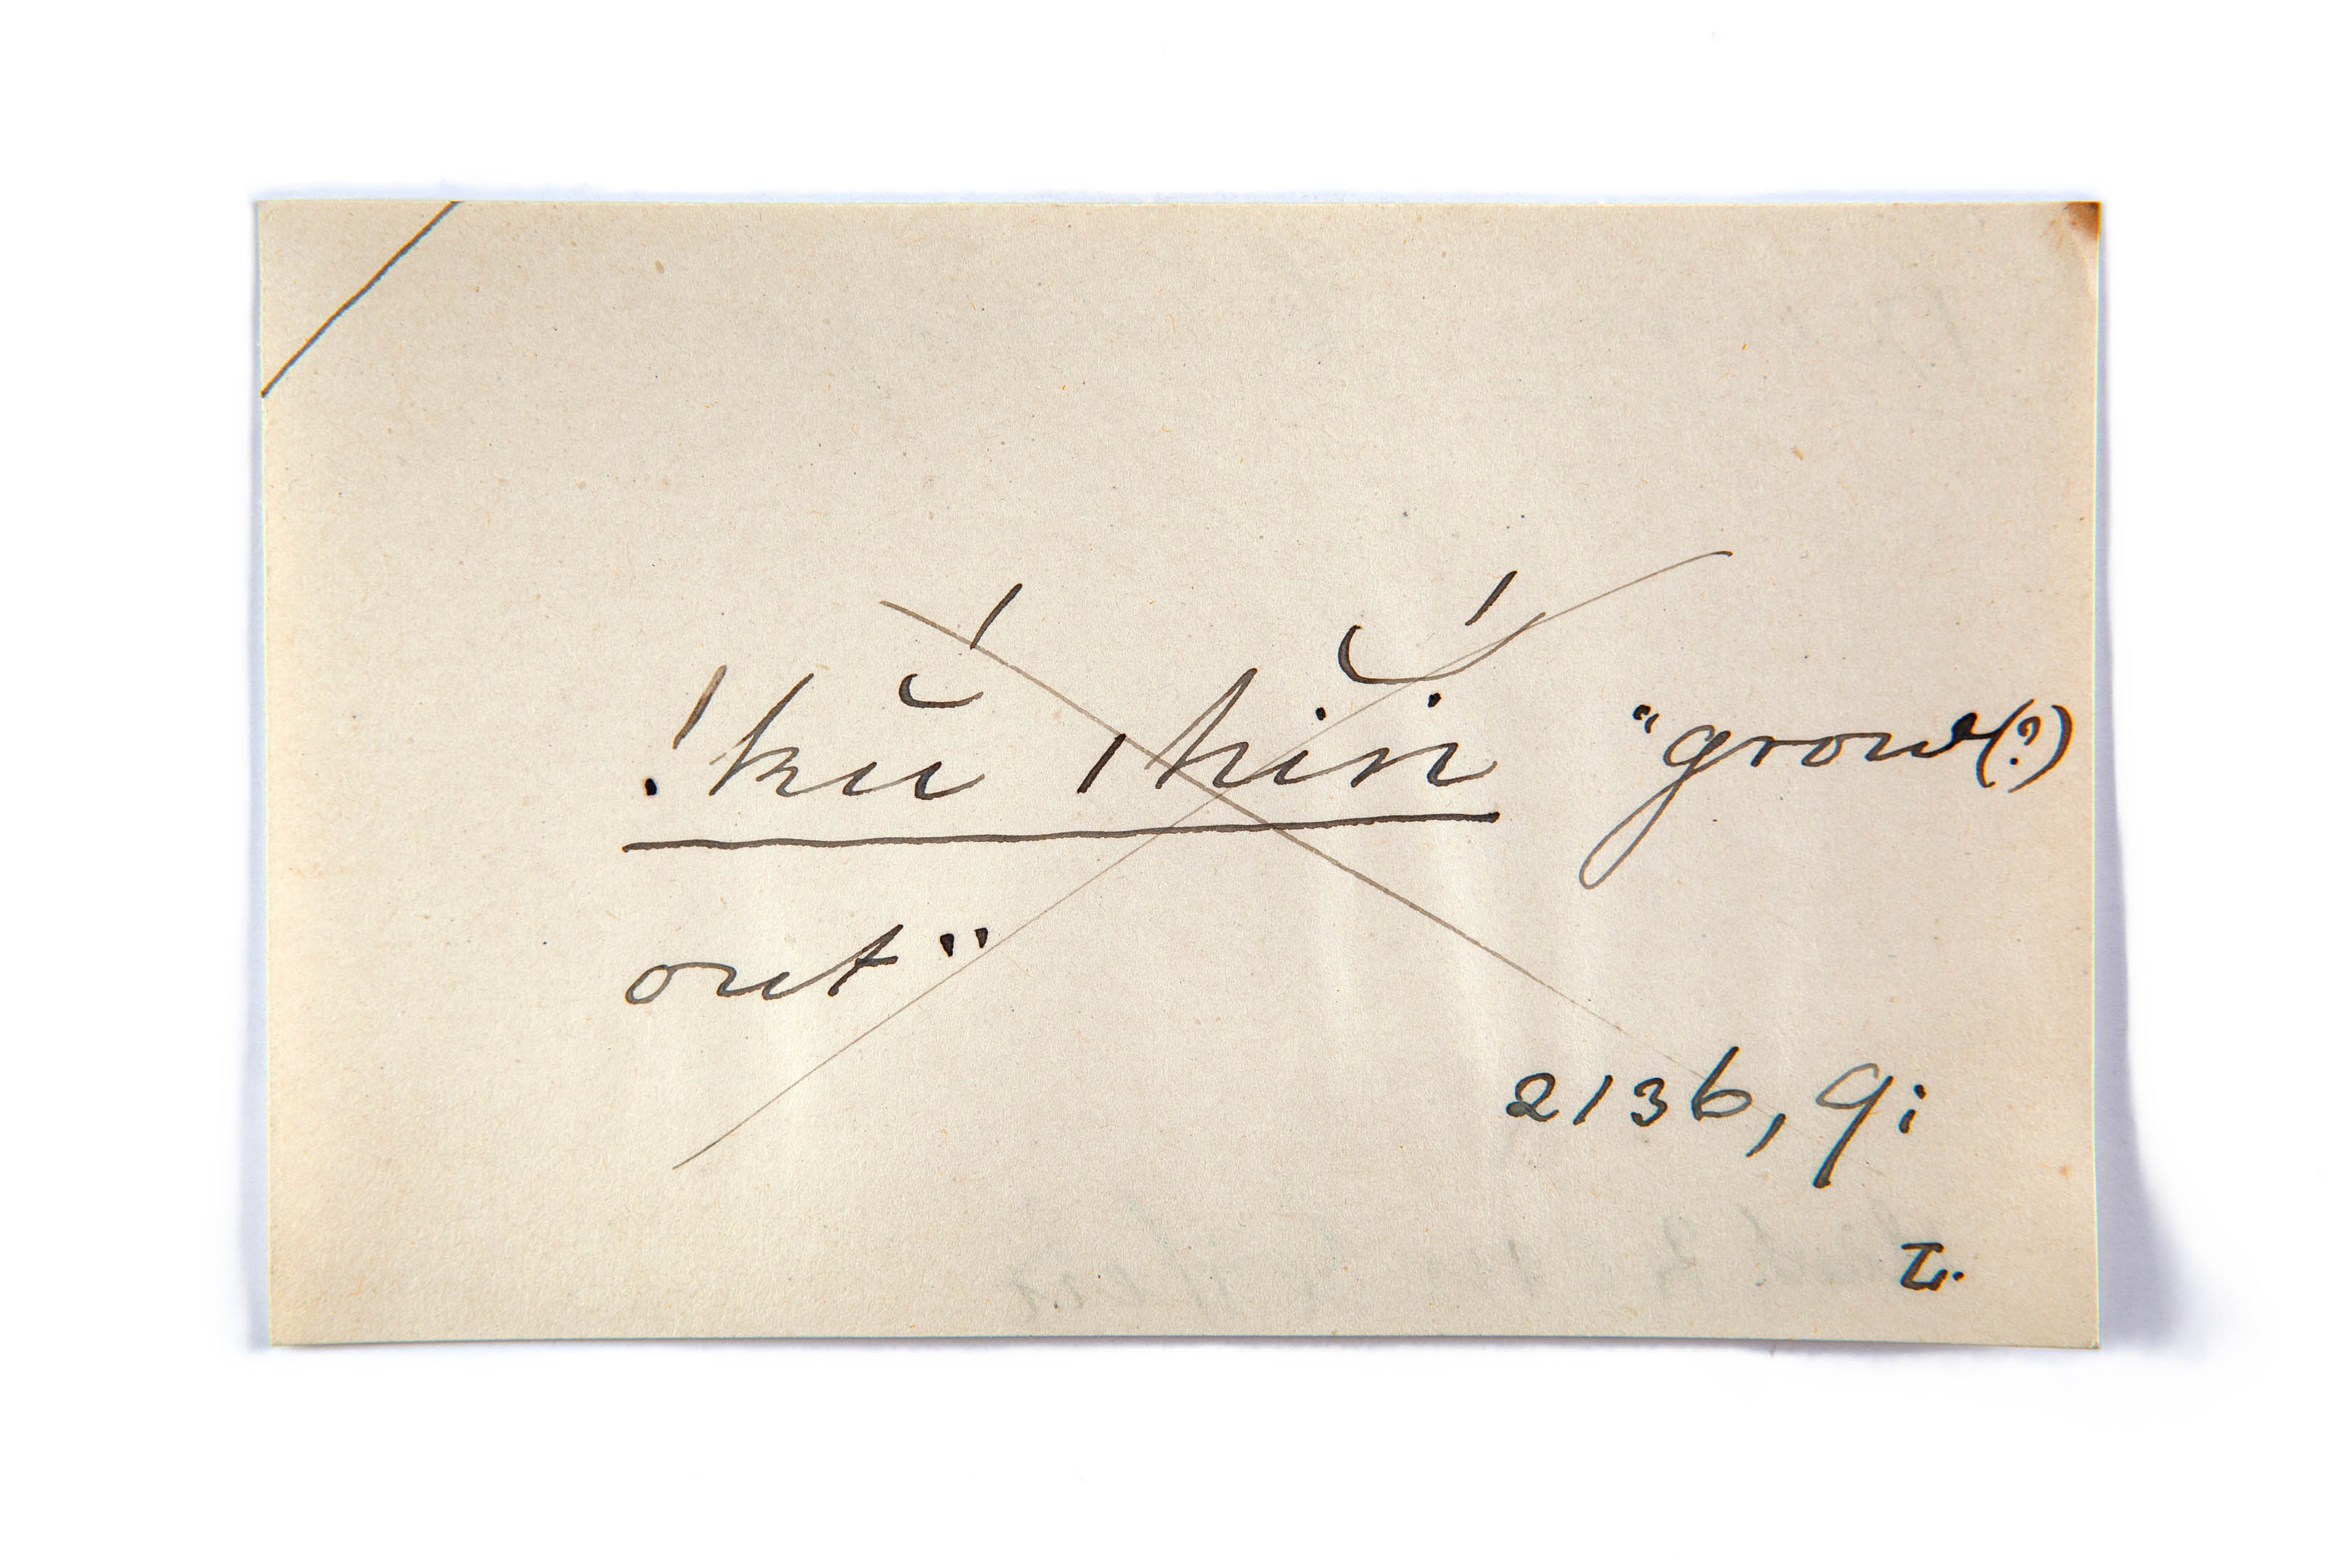 !kŭ́ ıhĭ́ń "grow(?)
out"
2136, 9;
L.